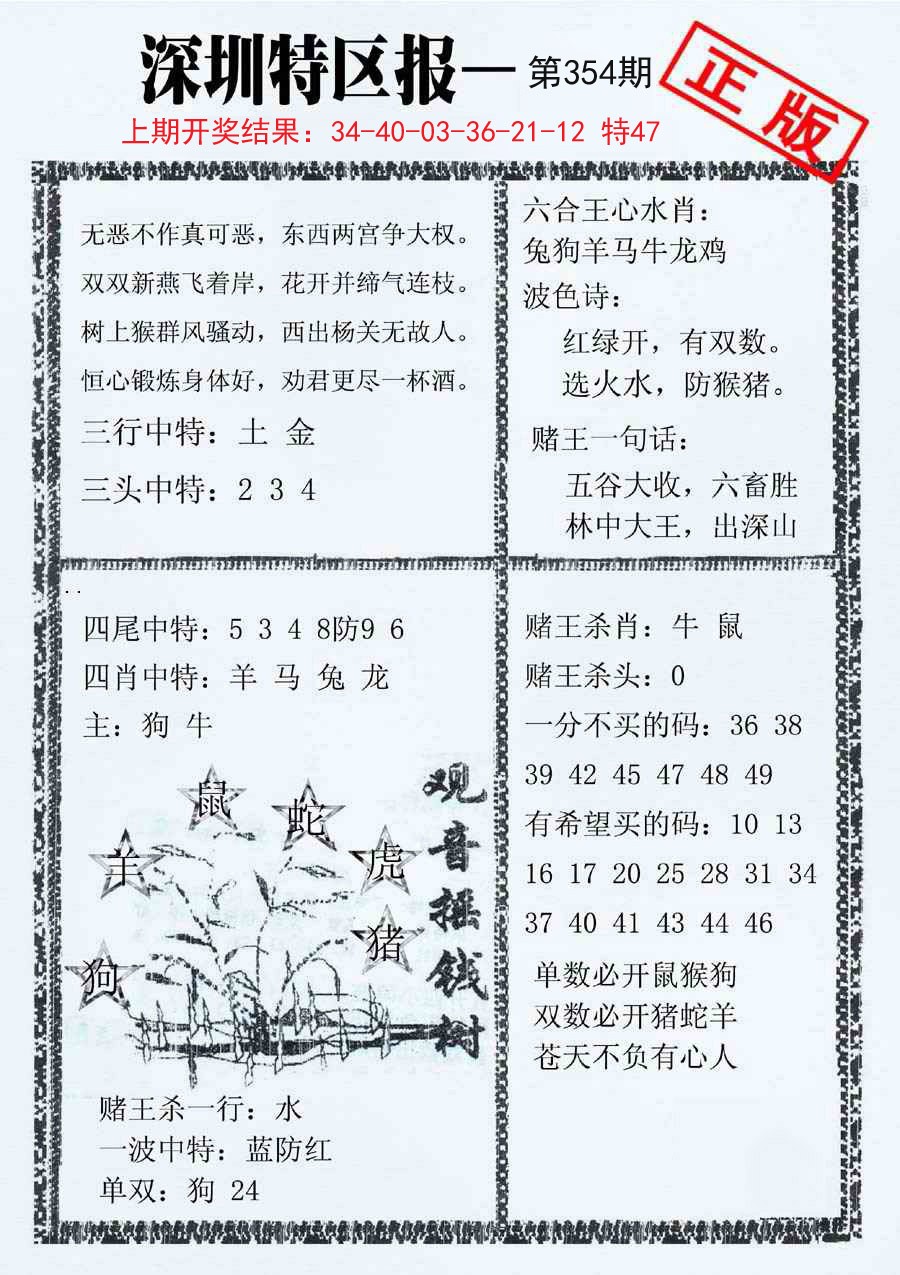 深圳特区报— 第354期
正版
上期开奖结果：34-40-03-36-21-12 特47
无恶不作真可恶，东西两宫争大权。
双双新燕飞着岸，花开并缔气连枝。
树上猴群风骚动，西出杨关无故人。
恒心锻炼身体好，劝君更尽一杯酒。
三行中特：土 金
三头中特：2 3 4
六合王心水肖：
兔狗羊马牛龙鸡
波色诗：
红绿开，有双数。
选火水，防猴猪。
赌王一句话：
五谷大收，六畜胜
林中大王，出深山
四尾中特：5 3 4 8防9 6
四肖中特：羊 马 兔 龙
主：狗 牛
鼠
蛇
羊
虎
猪
狗
观音摇钱树
赌王杀一行：水
一波中特：蓝防红
单双：狗 24
赌王杀肖：牛 鼠
赌王杀头：0
一分不买的码：36 38
39 42 45 47 48 49
有希望买的码：10 13
16 17 20 25 28 31 34
37 40 41 43 44 46
单数必开鼠猴狗
双数必开猪蛇羊
苍天不负有心人